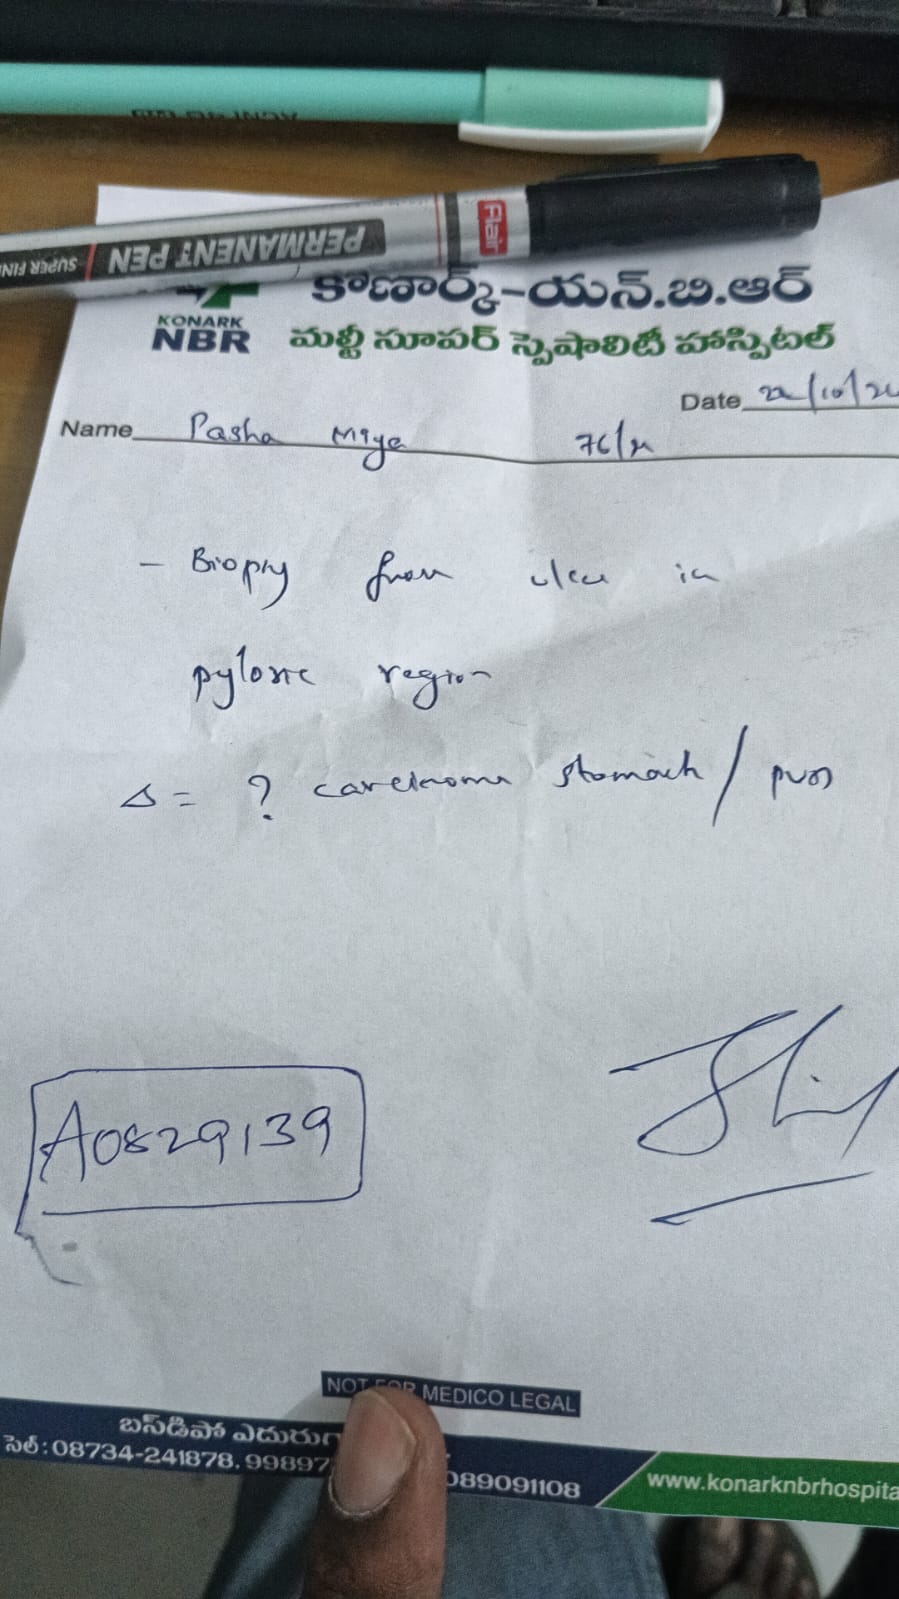 SUPER FIN PERMANENT PEN Flair
కోణార్క్-యన్.బి.ఆర్
KONARK
NBR మల్టీ సూపర్ స్పెషాలిటీ హాస్పిటల్
Date 22/10/2
Name Pasha Miya 76/M
- Biopsy from ulcer in
pyloric region
Δ = ? carcinoma stomach /
A0829139
NOT FOR MEDICO LEGAL
బస్‌డిపో ఎదురుగా
సెల్: 08734-241878, 99897 089091108
www.konarknbrhospita